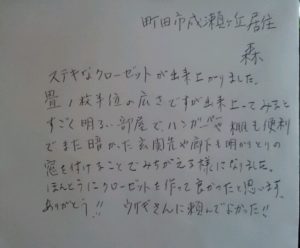 町田市成瀬ヶ丘居住
森
ステキなクローゼットが出来上がりました。
畳1枚半位の広さですが出来上ってみると
すごく明るい部屋で、ハンガーや棚も便利
でまた暗かった玄関先や廊下も明かりとりの
窓を付けることでみちがえる様になりました。
ほんとうにクローゼットを作って良かったと思います。
ありがとう!! ウサギさんに頼んでよかった!!